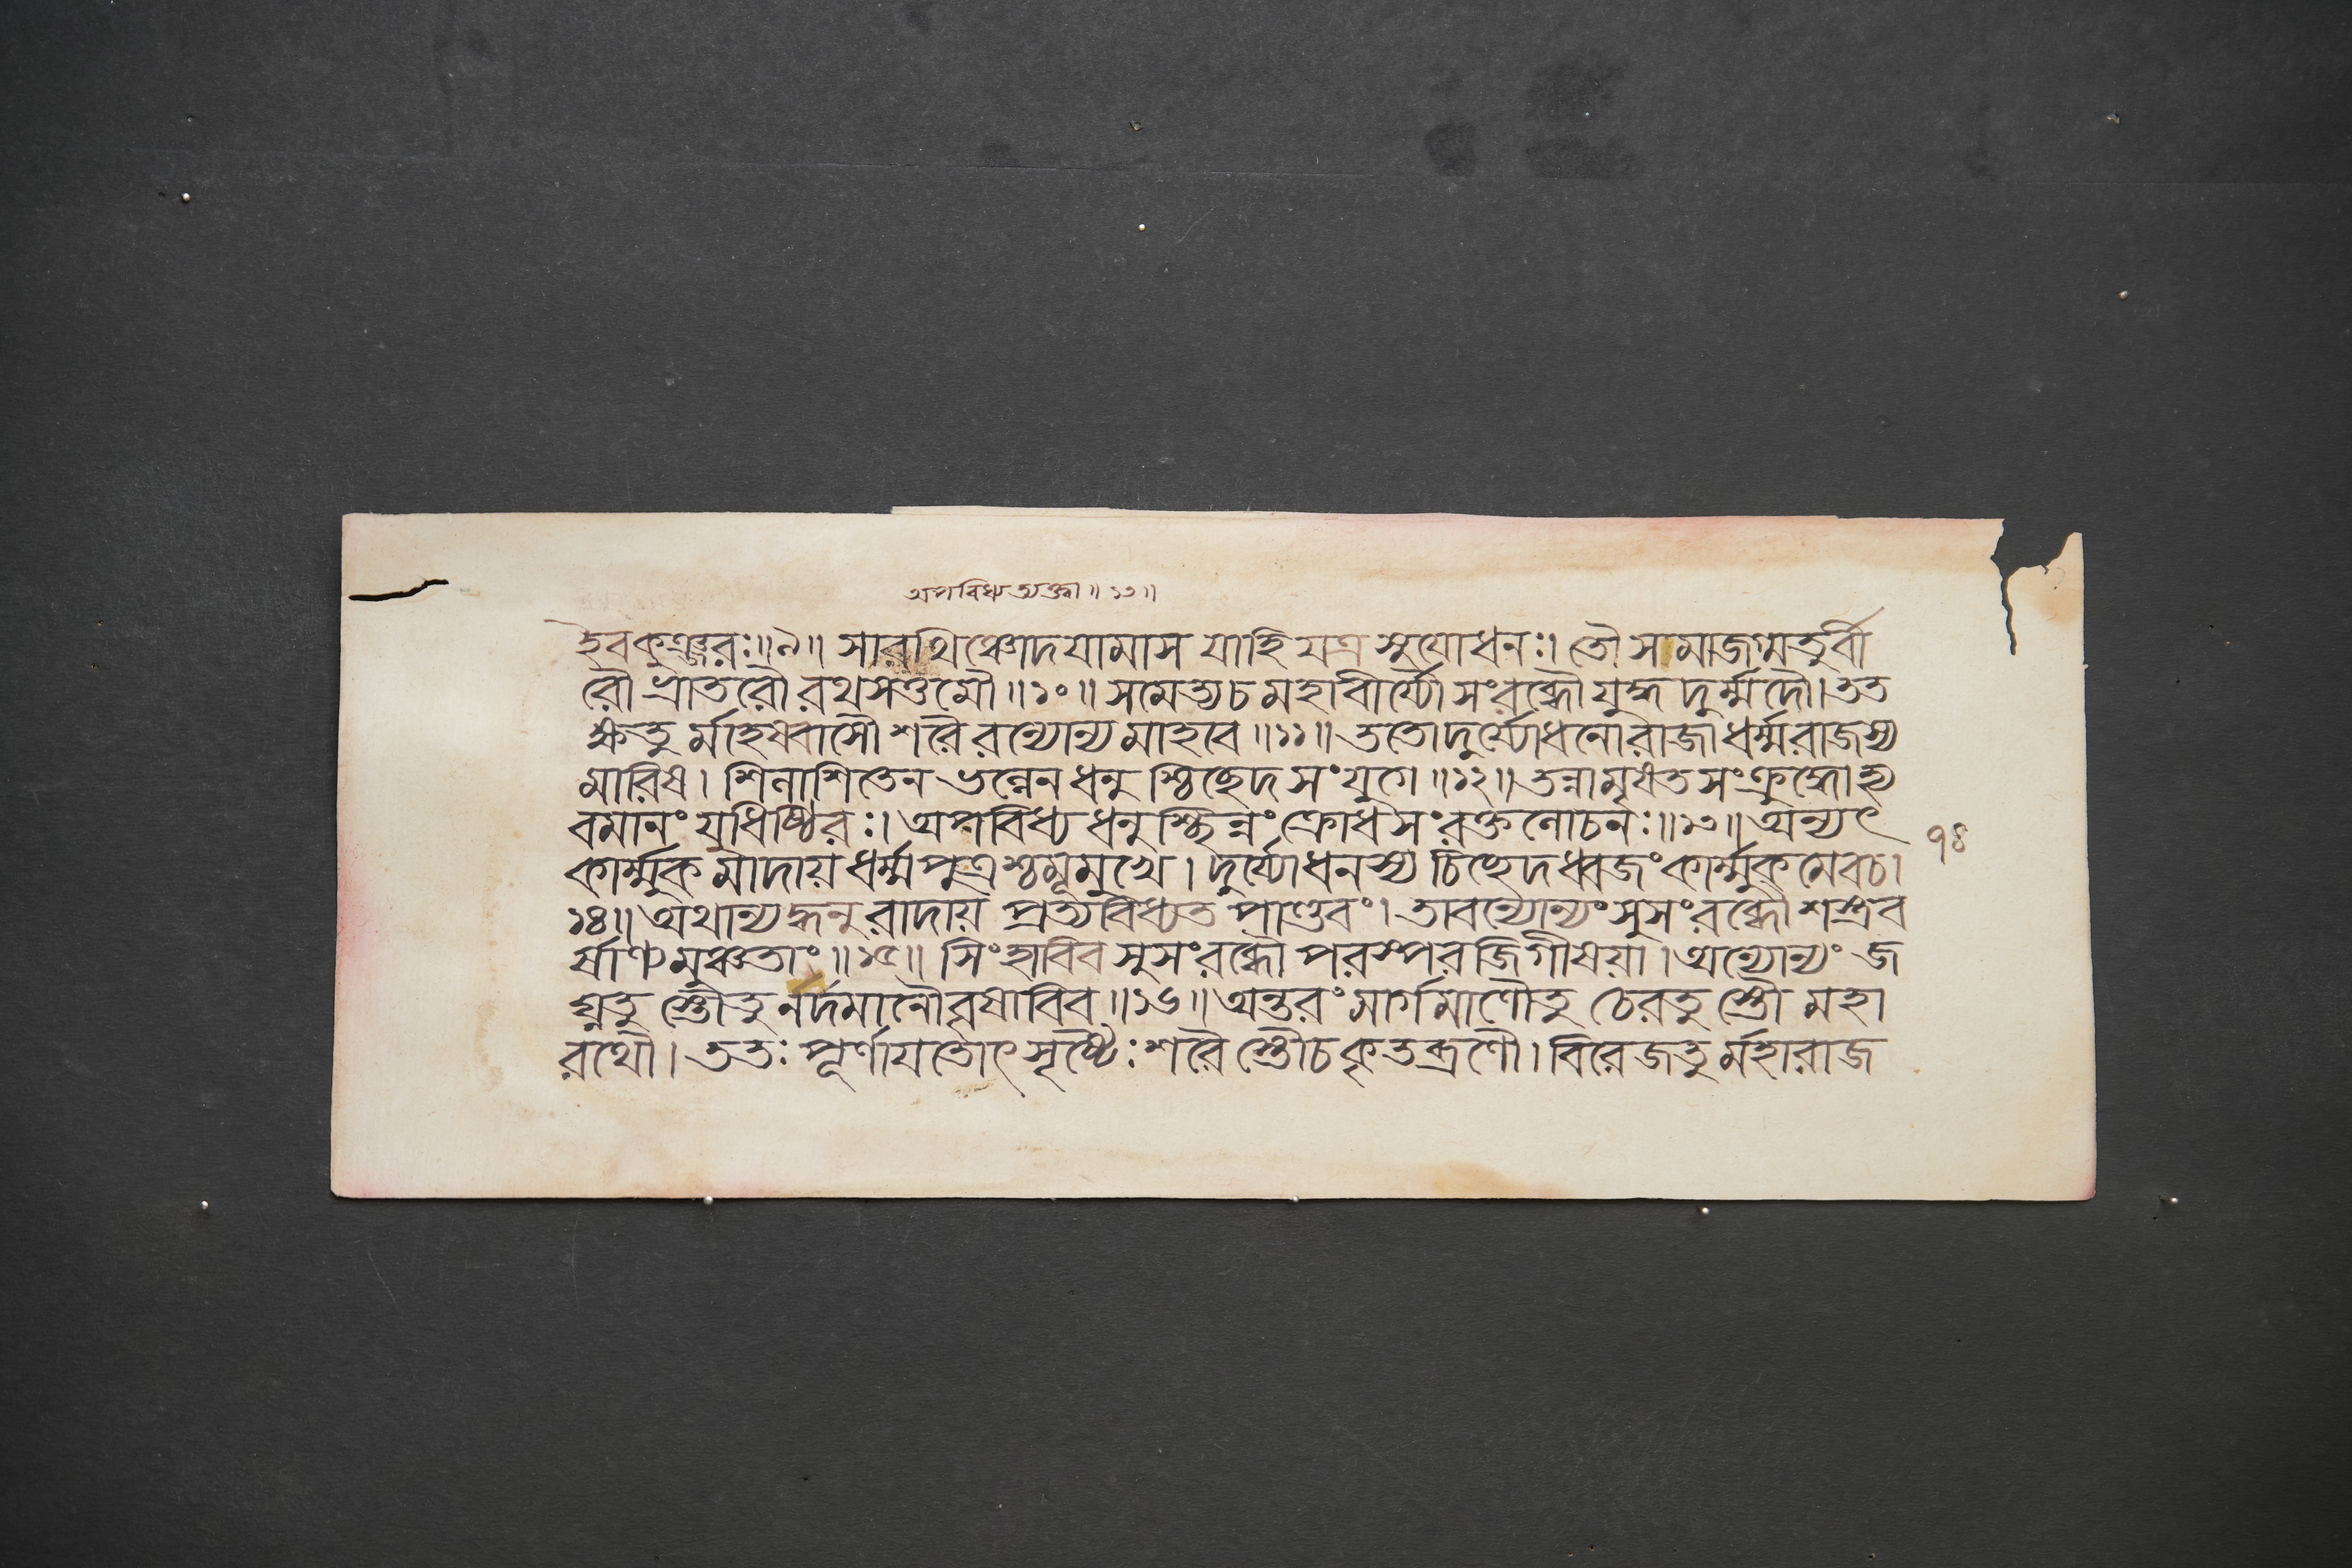 অপবিধ্য ত্যক্ত্বা॥১৩॥
হৈবকুঞ্জরঃ॥৯॥ সারথিঞ্চোদযামাস যাহি যত্র সুযোধনঃ। তৌ সমাজগ্মতুর্বী
রৌ ভ্রাতরৌ রথসত্তমৌ॥১০॥ সমেত্য চ মহাবীর্য্যৌ সংরব্ধৌ যুদ্ধদুর্ম্মদৌ। তত
ক্ষতু র্মহেষ্বাসৌ শরৈ রন্যোন্য মাহবে॥১১॥ ততো দুর্য্যোধনো রাজা ধর্ম্মরাজস্য
মারিষ। শিলাশিতেন ভল্লেন ধনু শ্চিচ্ছেদ সংযুগে॥১২॥ তন্নামৃষ্যত সংক্রুদ্ধো হ্য
বমানং যুধিষ্ঠিরঃ। অপবিধ্য ধনু শ্ছিন্নং ক্রোধসংরক্তলোচনঃ॥১৩॥ অন্যৎ
৭৪
কার্ম্মুক মাদায় ধর্ম্মপুত্রশ্চমূমুখে। দুর্য্যোধনস্য চিচ্ছেদ ধ্বজং কার্ম্মুকমেবচ।
১৪॥ অথান্যদ্ধনু রাদায় প্রত্যবিধ্যত পাণ্ডবং। তাবন্যোন্যং সুসংরব্ধৌ শস্ত্রব
র্ষাণ্যমুঞ্চতাং॥১৫॥ সিংহাবিব সুসংরব্ধৌ পরস্পরজিগীষয়া। অন্যোন্যং জ
ঘ্নতু স্তৌতু নর্দমানৌ বৃষাবিব॥১৬॥ অন্তরং মার্গমাণৌতু চেরতু স্তৌ মহা
রথৌ। ততঃ পূর্ণায়তোৎসৃষ্টৈঃ শরৈ স্তৌচ কৃতব্রণৌ। বিরেজতু র্মহারাজ